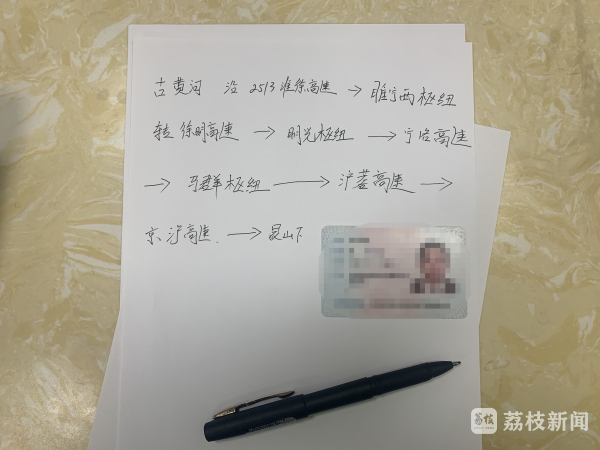 古黄河 沿 2513淮徐高速 → 睢宁西枢纽
转 徐明高速 → 明光枢纽 → 宁洛高速
→ 马群枢纽 → 沪蓉高速 →
京沪高速. → 昆山下
荔枝
荔枝新闻